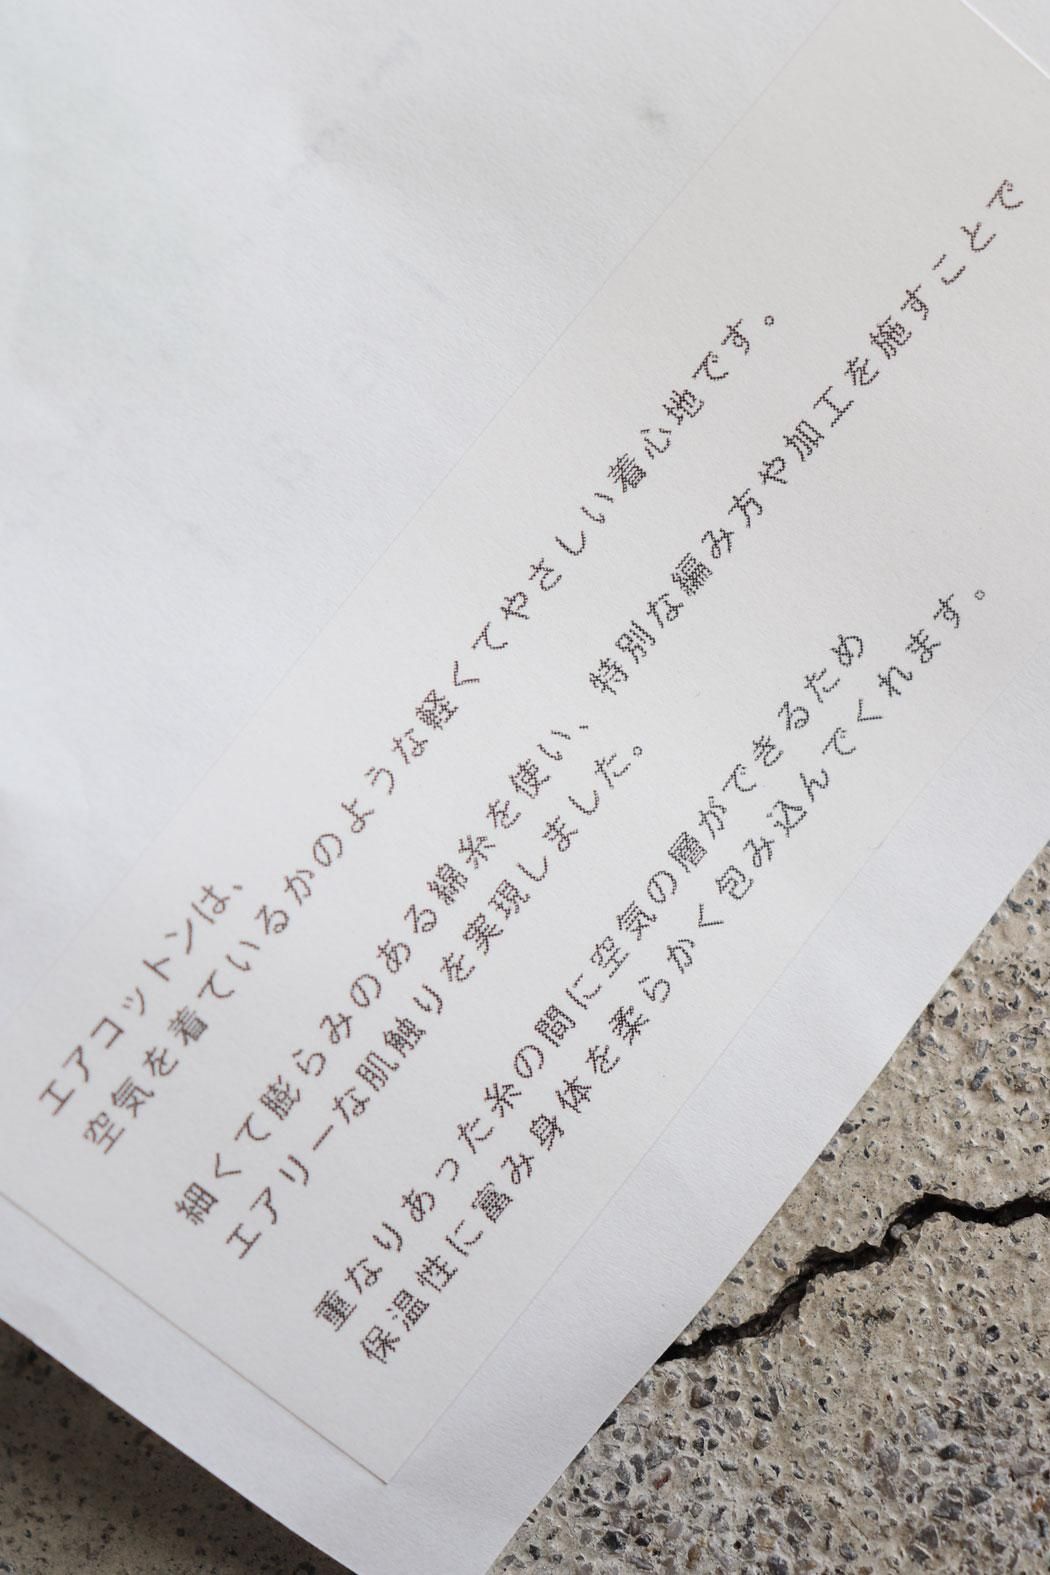 エアコットンは、
空気を着ているかのような軽くてやさしい着心地です。
細くて膨らみのある綿糸を使い、特別な編み方や加工を施すことで
エアリーな肌触りを実現しました。
重なりあった糸の間に空気の層ができるため
保温性に富み身体を柔らかく包み込んでくれます。